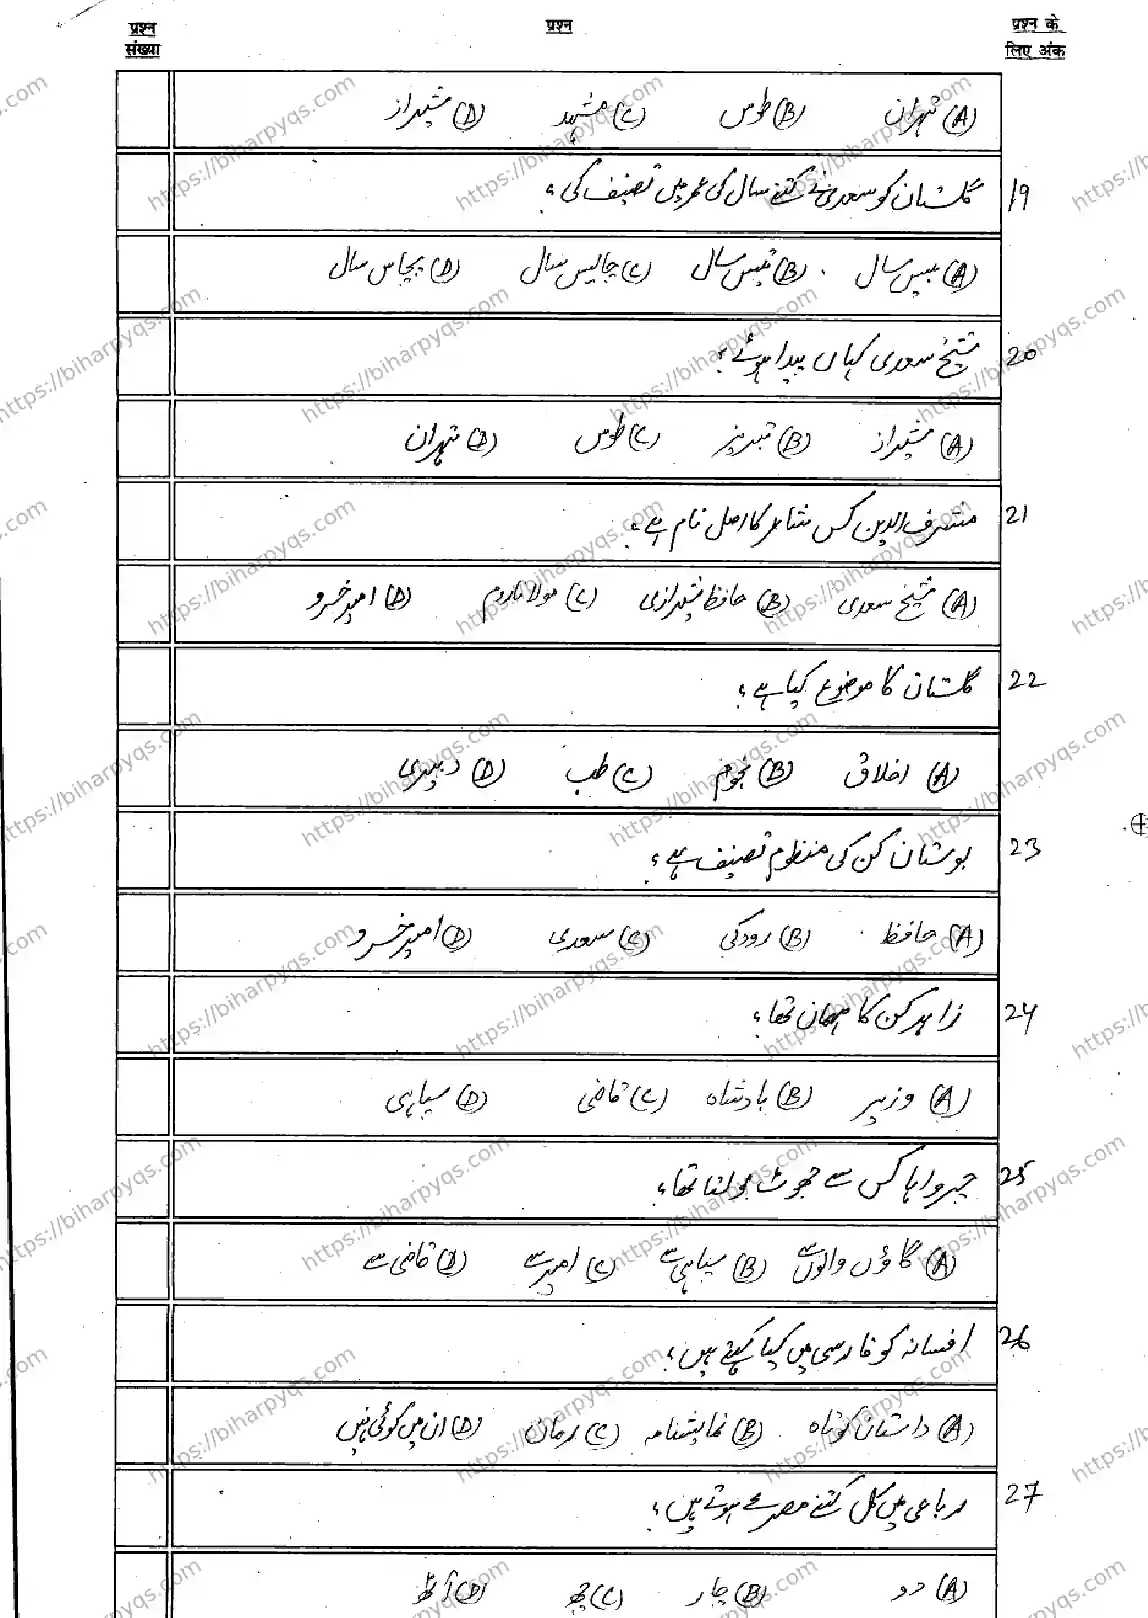 प्रश्न संख्या
प्रश्न
प्रश्न के लिए अंक
(A) تہران (B) طوس (C) مشہد (D) شیراز
19 گلستان کو سعدی نے کتنے سال کی عمر میں تصنیف کی؟
(A) بیس سال (B) تیس سال (C) چالیس سال (D) پچاس سال
20 شیخ سعدی کہاں پیدا ہوئے؟
(A) شیراز (B) تبریز (C) طوس (D) تہران
21 مشرف الدین کس شاعر کا اصل نام ہے؟
(A) شیخ سعدی (B) حافظ شیرازی (C) مولانا روم (D) امیر خسرو
22 گلستان کا موضوع کیا ہے؟
(A) اخلاق (B) نجوم (C) طب (D) دبیری
23 بوستان کن کی منظوم تصنیف ہے؟
(A) حافظ (B) رودکی (C) سعدی (D) امیر خسرو
24 زاہد کن کا مہمان تھا؟
(A) وزیر (B) بادشاہ (C) قاضی (D) سپاہی
25 چرواہا کس سے جھوٹ بولتا تھا؟
(A) گاؤں والوں سے (B) سپاہی سے (C) امیر سے (D) قاضی سے
26 افسانہ کو فارسی میں کیا کہتے ہیں؟
(A) داستان کوتاہ (B) نمایشنامہ (C) رمان (D) ان میں کوئی نہیں
27 رباعی میں کل کتنے مصرعے ہوتے ہیں؟
(A) دو (B) چار (C) چھ (D) آٹھ
https://biharpyqs.com